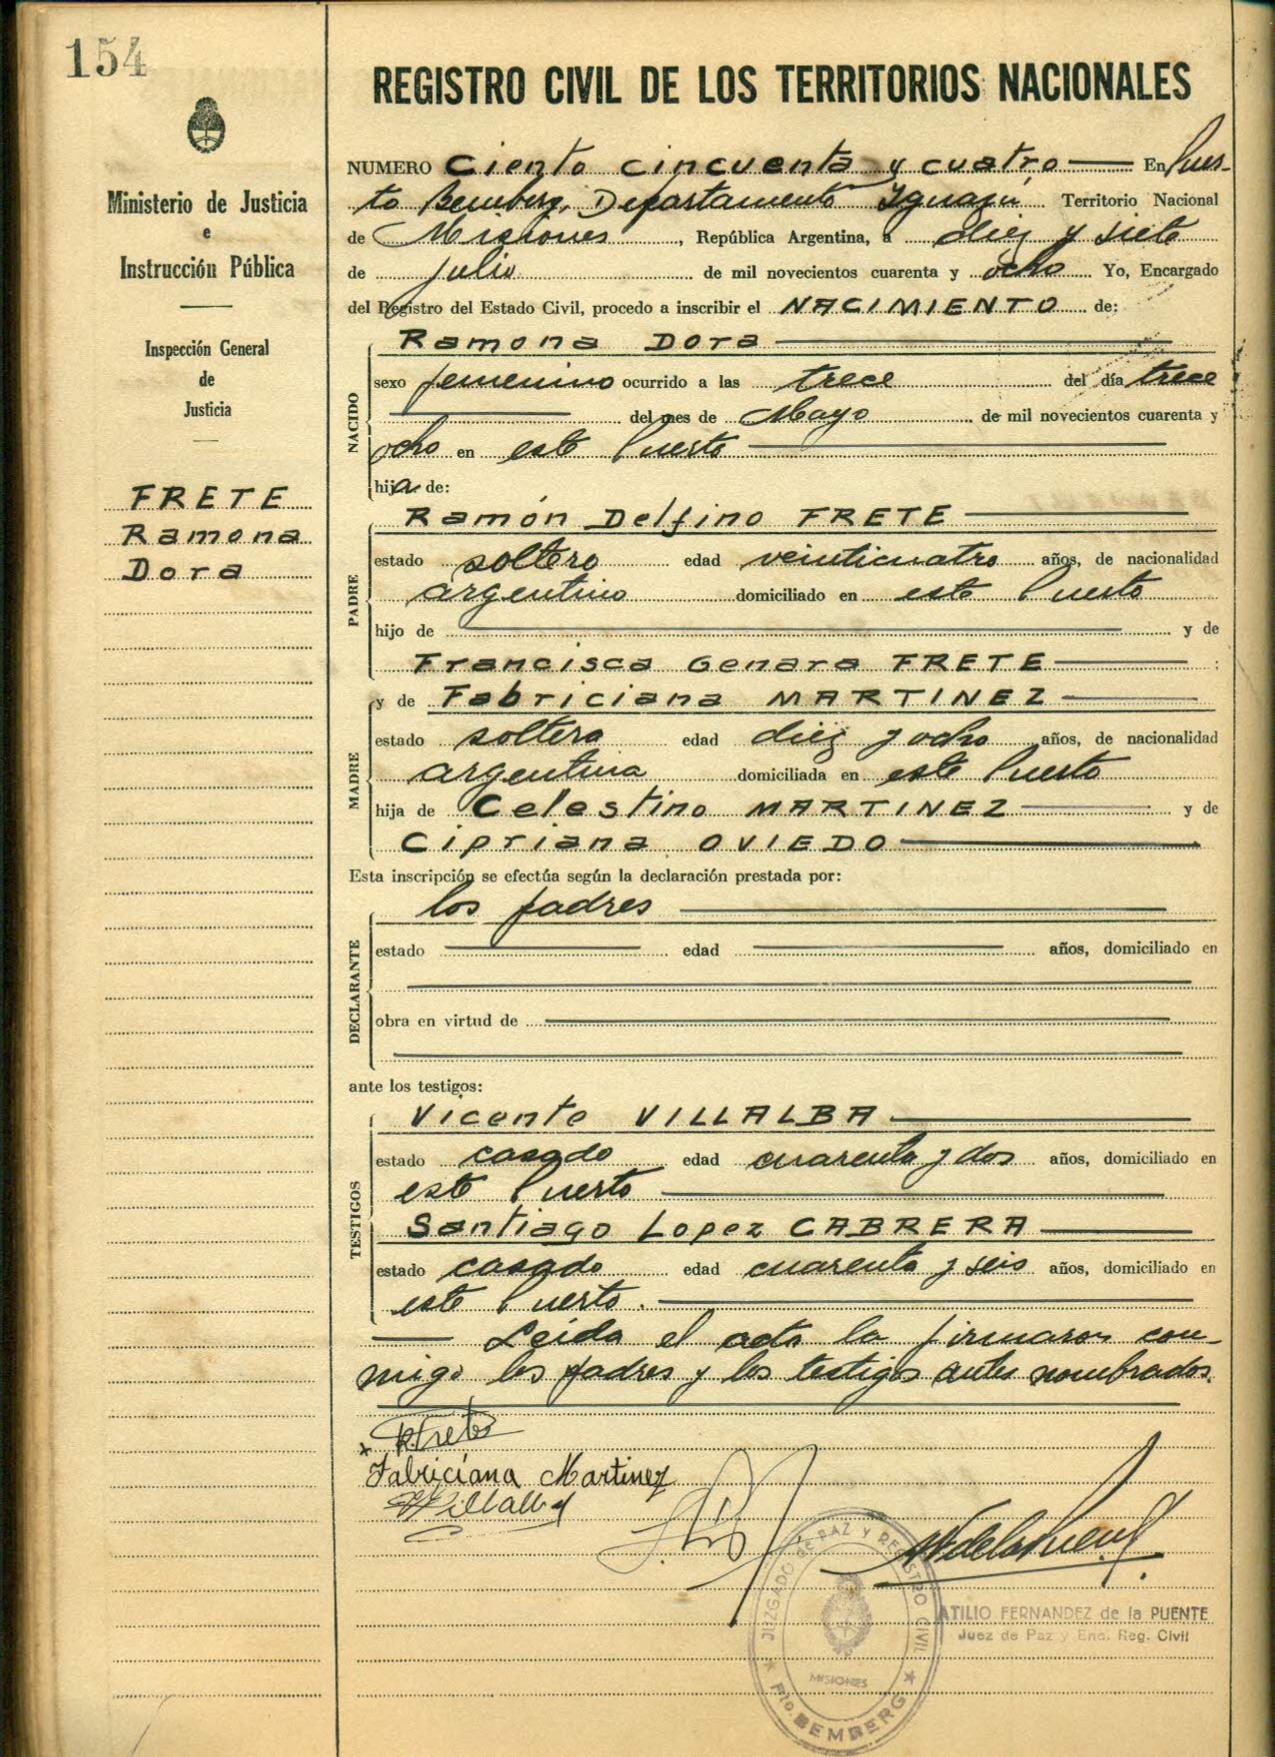 154
Ministerio de Justicia
e
Instrucción Pública
Inspección General
de
Justicia
FRETE
Ramona
Dora
REGISTRO CIVIL DE LOS TERRITORIOS NACIONALES
NUMERO Ciento cincuenta y cuatro En Puer-
to Bemberg, Departamento Iguazú Territorio Nacional
de Misiones, República Argentina, a diez y siete
de julio de mil novecientos cuarenta y ocho Yo, Encargado
del Registro del Estado Civil, procedo a inscribir el NACIMIENTO de:
NACIDO
Ramona Dora
sexo femenino ocurrido a las trece del día trece
del mes de Mayo de mil novecientos cuarenta y
ocho en este Puerto
hija de:
PADRE
Ramón Delfino FRETE
estado soltero edad veinticuatro años, de nacionalidad
argentino domiciliado en este Puerto
hijo de y de
Francisca Genara FRETE :
MADRE
y de Fabriciana MARTINEZ
estado soltera edad diez y ocho años, de nacionalidad
argentina domiciliada en este Puerto
hija de Celestino MARTINEZ y de
Cipriana OVIEDO
Esta inscripción se efectúa según la declaración prestada por:
DECLARANTE
los padres
estado edad años, domiciliado en
obra en virtud de
ante los testigos:
TESTIGOS
Vicente VILLALBA
estado casado edad cuarenta y dos años, domiciliado en
este Puerto
Santiago Lopez CABRERA
estado casado edad cuarenta y seis años, domiciliado en
este Puerto.
Leída el acta la firmaron con-
migo los padres y los testigos antes nombrados.
x RFrete
Fabriciana Martinez
VVillalba
JUZGADO de PAZ Y REGISTRO CIVIL
MISIONES
Pto. BEMBERG
ATILIO FERNANDEZ de la PUENTE
Juez de Paz y Enc. Reg. Civil